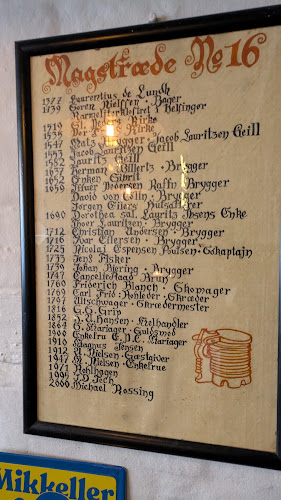 Magstræde No 16
1377 Laurentius de Lundh
1739 Søren Nielssen · Bager
Karmeliterklostret i Helsingør
1519 Kirke
Kirke
1547 Matz · Brygger · Jacob Lauritzen Geill
1553 Jacob Lauritzen Geill
1582 Laurits Geill
1637 Herman Willertz · Brygger
1652 Enken Sibrit
1659 Pedersen Raffn Brygger
David von Cölln · Brygger
Jørgen Eilers Husfattiger
1690 Dorothea sal. Lauritz Ibsens Enke
Thoer Lauritzen · Brygger
1712 Christian Andersen · Brygger
1716 Ivar Eilersen · Brygger
1725 Nicolai Espensen Poulsen · Skaptajn
1733 Jens Fisker
1739 Johan Biering · Brygger
1747 Cancelliraad Brun
1760 Friderich Blanch · Skomager
1769 Carl Frid: Rohleder · Skræder
1797 Altschwager · Skrædermester
1816 G. H. Grip
1852 A. H. Hansen · Melhandler
1864 G. Mariager · Guldsmed
1900 Enkefru E. D. C. Mariager
1910 Magnus Jensen
1912 N. Nielsen · Gæstgiver
1947 M. Nielsen · Enkefrue
1971 Rehlhagen
1995 Tech
2000 Michael Rossing
Mikkeller